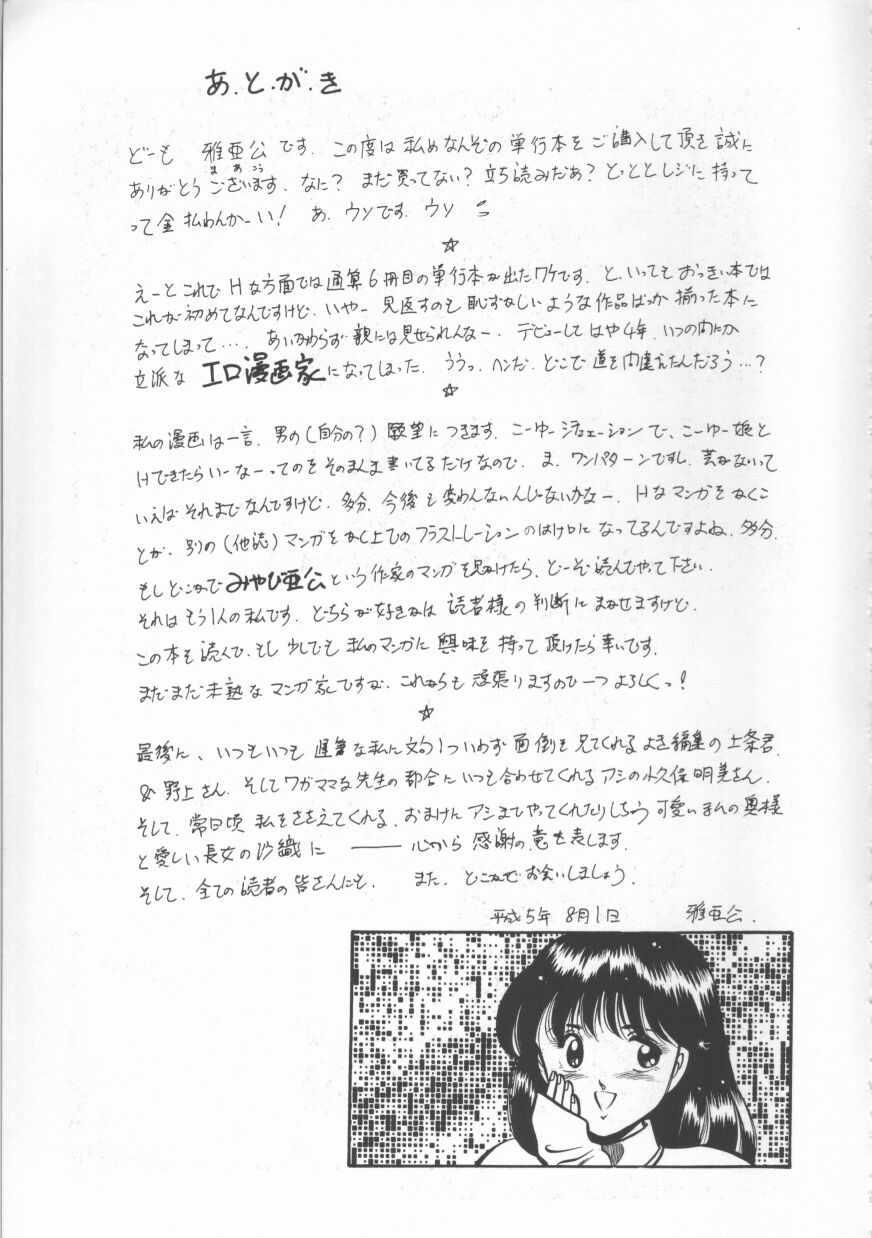 あ.と.が.き
どーも 雅亜公です。この度は私めなんぞの単行本をご購入して頂き誠に
まあこう
ありがとうございます。なに？まだ買ってない？立ち読みだあ？とっととレジに持って
って金払わんかーい！ あ、ウソです、ウソ
☆
えーとこれでHな方面では通算6冊目の単行本が出たワケです。と、いってもおっきい本では
これが初めてなんですけど。いやー見返すのも恥ずかしいような作品ばっか揃った本に
なってしまって…。あいかわらず親には見せられんなー。デビューしてはや4年、いつの内にか
立派なエロ漫画家になってしまった。ううっ、ヘンだ、どこで道を間違えたんだろう…？
☆
私の漫画は一言、男の(自分の？)願望につきます。こーゆーシチュエーションで、こーゆー娘と
Hできたらいーなーってのをそのまんま書いてるだけなので、ま、ワンパターンですし、芸がないって
いえばそれまでなんですけど、多分、今後も変わんないんじゃないかなー。Hなマンガをかくこ
とが、別の(他誌)マンガをかく上でのフラストレーションのはけ口になってるんですよね、多分。
もしどこかでみやび亜公という作家のマンガを見かけたら、どーぞ読んでやって下さい。
それはもう1人の私です。どちらが好きかは読者様の判断にまかせますけど。
この本を読んで、もし少しでも私のマンガに興味を持って頂けたら幸いです。
まだまだ未熟なマンガ家ですが、これからも頑張りますので一つよろしくっ！
☆
最後に、いつもいつも遅筆な私に文句1ついわず面倒を見てくれるよき編集の上条君
&野上さん。そしてワガママな先生の都合にいつも合わせてくれるアシの久保明美さん。
そして、常日頃私をささえてくれる、おまけにアシまでやってくれたりしちゃう可愛いまんの奥様
と愛しい長女の沙織に ―― 心から感謝の意を表します。
そして、全ての読者の皆さんにも。 また、どこかでお会いしましょう。
平成5年 8月1日 雅亜公.